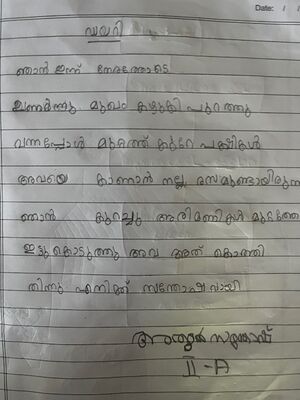 Date: / /
ഡയറി
ഞാൻ ഇന്ന് നേരത്തോടെ
ഉണർന്നു മുഖം കഴുകി പുറത്തു
വന്നപ്പോൾ മുറ്റത്ത് കുറേ പക്ഷികൾ
അവയെ കാണാൻ നല്ല രസമുണ്ടായിരുന്ന
ഞാൻ കുറച്ചു അരിമണികൾ മുറ്റത്തേ
ഇട്ടുകൊടുത്തു അവ അത് കൊത്തി
തിന്നു എനിക്ക് സന്തോഷവായി
II-A